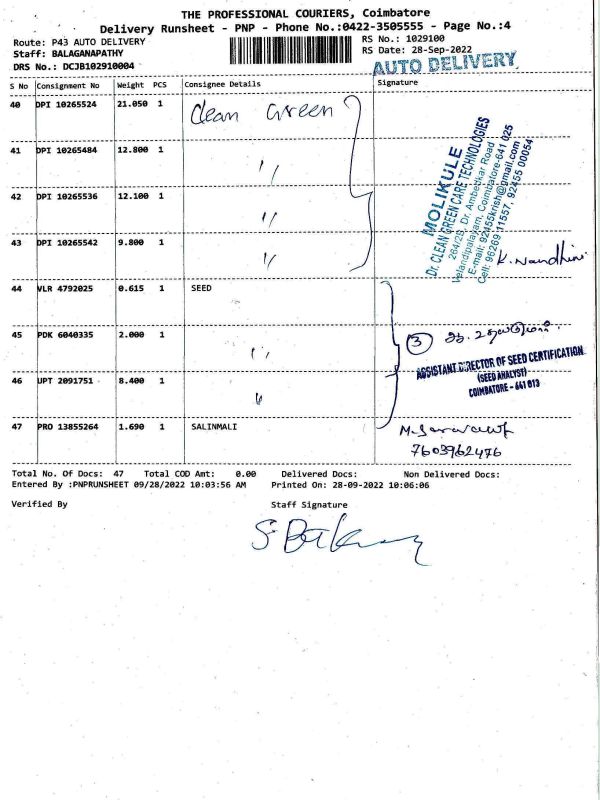 THE PROFESSIONAL COURIERS, Coimbatore
Delivery Runsheet - PNP - Phone No.:0422-3505555 - Page No.:4
Route: P43 AUTO DELIVERY
Staff: BALAGANAPATHY
DRS No.: DCJB102910004
RS No.: 1029100
RS Date: 28-Sep-2022
AUTO DELIVERY
S No Consignment No Weight PCS Consignee Details Signature
40 DPI 10265524 21.050 1 Clean Green
41 DPI 10265484 12.800 1 "
42 DPI 10265536 12.100 1 "
43 DPI 10265542 9.800 1 "
MOLIKULE
Dr. CLEAN GREEN CARE TECHNOLOGIES
264/2B, Dr. Ambedkar Road
Velandipalayam, Coimbatore-641 025
E-mail: 92455krish@gmail.com
Cell: 96269 11557, 92455 00054
K. Nandhini
44 VLR 4792025 0.615 1 SEED
45 PDK 6040335 2.000 1 "
46 UPT 2091751 8.400 1 "
3
ASSISTANT DIRECTOR OF SEED CERTIFICATION
(SEED ANALYST)
COIMBATORE - 641 013
47 PRO 13855264 1.690 1 SALINMALI
7603962476
Total No. Of Docs: 47 Total COD Amt: 0.00 Delivered Docs: Non Delivered Docs:
Entered By :PNPRUNSHEET 09/28/2022 10:03:56 AM Printed On: 28-09-2022 10:06:06
Verified By Staff Signature